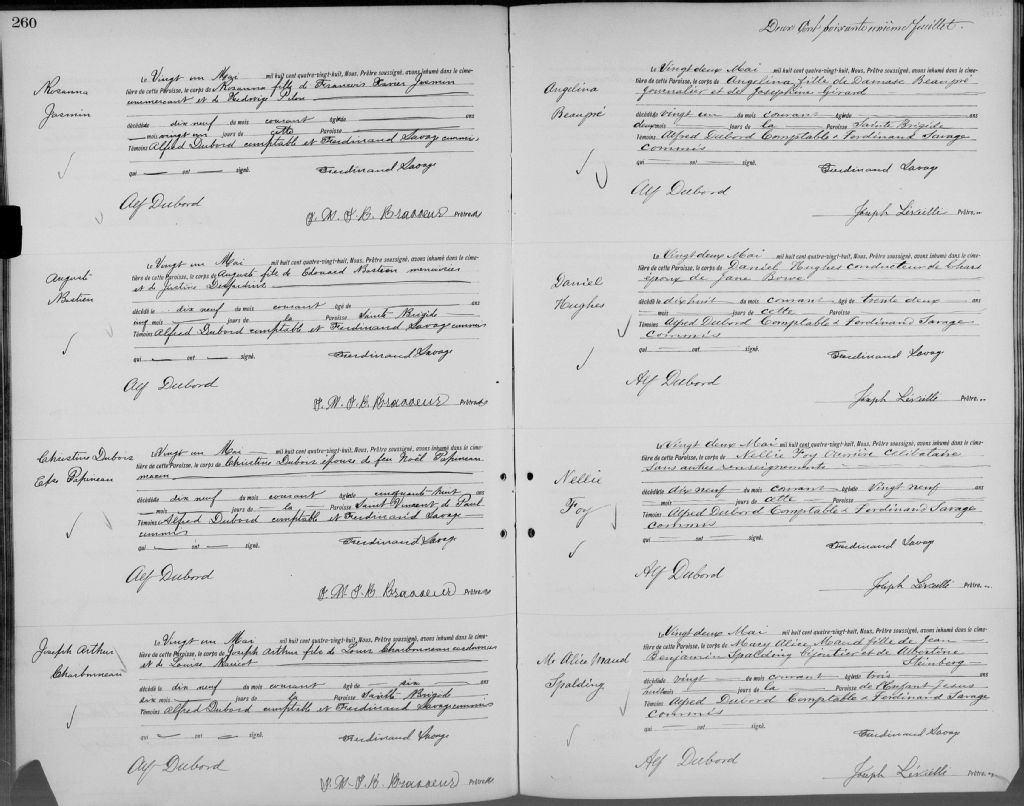 260
Rosanna
Jasmin
Le Vingt un Mai mil huit cent quatre-vingt-huit, Nous, Prêtre soussigné, avons inhumé dans le cime-
tière de cette Paroisse, le corps de Rosanna fille de Francois Xavier Jasmin
commercant et de Hedwige Pilon
décédée dix neuf du mois courant âgée de ans
mois vingt un jours de cette Paroisse
Témoins Alfred Dubord comptable et Ferdinand Savage commis
qui ont signé. Ferdinand Savage
Alf Dubord
J. M. J. B. Brasseur Prêtre
Auguste
Bastien
Le Vingt un Mai mil huit cent quatre-vingt-huit, Nous, Prêtre soussigné, avons inhumé dans le cime-
tière de cette Paroisse, le corps de Auguste fils de Edouard Bastien menuisier
et de Justine Desjardins
décédé le dix neuf du mois courant âgé de ans
cinq mois jours de la Paroisse Sainte Brigide
Témoins Alfred Dubord comptable et Ferdinand Savage commis
qui ont signé. Ferdinand Savage
Alf Dubord
J. M. J. B. Brasseur Prêtre
Christine Dubois
Epse Papineau
Le Vingt un Mai mil huit cent quatre-vingt-huit, Nous, Prêtre soussigné, avons inhumé dans le cime-
tière de cette Paroisse, le corps de Christine Dubois épouse de feu Noël Papineau
macon
décédée dix neuf du mois courant âgée de cinquante-huit ans
mois jours de la Paroisse Saint Vincent de Paul
Témoins Alfred Dubord comptable et Ferdinand Savage
commis
qui ont signé. Ferdinand Savage
Alf Dubord
J. M. J. B. Brasseur Prêtre
Joseph Arthur
Charbonneau
Le Vingt un Mai mil huit cent quatre-vingt-huit, Nous, Prêtre soussigné, avons inhumé dans le cime-
tière de cette Paroisse, le corps de Joseph Arthur fils de Louis Charbonneau cordonnier
et de Louise
décédé le dix neuf du mois courant âgé de six ans
dix mois jours de la Paroisse Sainte Brigide
Témoins Alfred Dubord comptable et Ferdinand Savage commis
qui ont signé. Ferdinand Savage
Alf Dubord
J. M. J. B. Brasseur Prêtre
Deux Cent soixante unième feuillet.
Angelina
Beaupré
Le Vingt deux Mai mil huit cent quatre-vingt-huit, Nous, Prêtre soussigné, avons inhumé dans le cime-
tière de cette Paroisse, le corps de Angelina fille de Damase Beaupré
journalier et de Josephine Girard
décédée vingt un du mois courant âgée de ans
deux mois jours de la Paroisse Sainte Brigide
Témoins Alfred Dubord Comptable & Ferdinand Savage
commis
qui ont signé. Ferdinand Savage
Alf Dubord
Joseph Léveillé Prêtre
Daniel
Hughes
Le Vingt deux Mai mil huit cent quatre-vingt-huit, Nous, Prêtre soussigné, avons inhumé dans le cime-
tière de cette Paroisse, le corps de Daniel Hughes conducteur de Chars
époux de Jane Bowe
décédé le dix huit du mois courant âgé de trente deux ans
mois jours de cette Paroisse
Témoins Alfred Dubord Comptable & Ferdinand Savage
commis
qui ont signé. Ferdinand Savage
Alf Dubord
Joseph Léveillé Prêtre
Nellie
Foy
Le Vingt deux Mai mil huit cent quatre-vingt-huit, Nous, Prêtre soussigné, avons inhumé dans le cime-
tière de cette Paroisse, le corps de Nellie Foy Ouvrière célibataire
Sans autres renseignements
décédée dix neuf du mois courant âgée de Vingt neuf ans
mois jours de cette Paroisse
Témoins Alfred Dubord Comptable & Ferdinand Savage
commis
qui ont signé. Ferdinand Savage
Alf Dubord
Joseph Léveillé Prêtre
My Alice Maud
Spalding
Le Vingt deux Mai mil huit cent quatre-vingt-huit, Nous, Prêtre soussigné, avons inhumé dans le cime-
tière de cette Paroisse, le corps de Mary Alice Maud fille de Jean
Benjamin Spalding bijoutier et de Albertine
Steinberg
décédée vingt du mois courant âgée de trois ans
huit mois jours de la Paroisse de l'Enfant Jesus
Témoins Alfred Dubord Comptable & Ferdinand Savage
commis
qui ont signé. Ferdinand Savage
Alf Dubord
Joseph Léveillé Prêtre